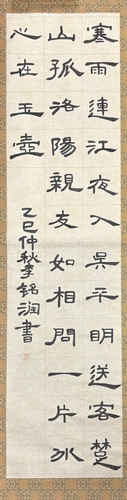 寒雨連江夜入吳平明送客楚
山孤洛陽親友如相問一片冰
心在玉壺
乙巳仲秋李銘潤書